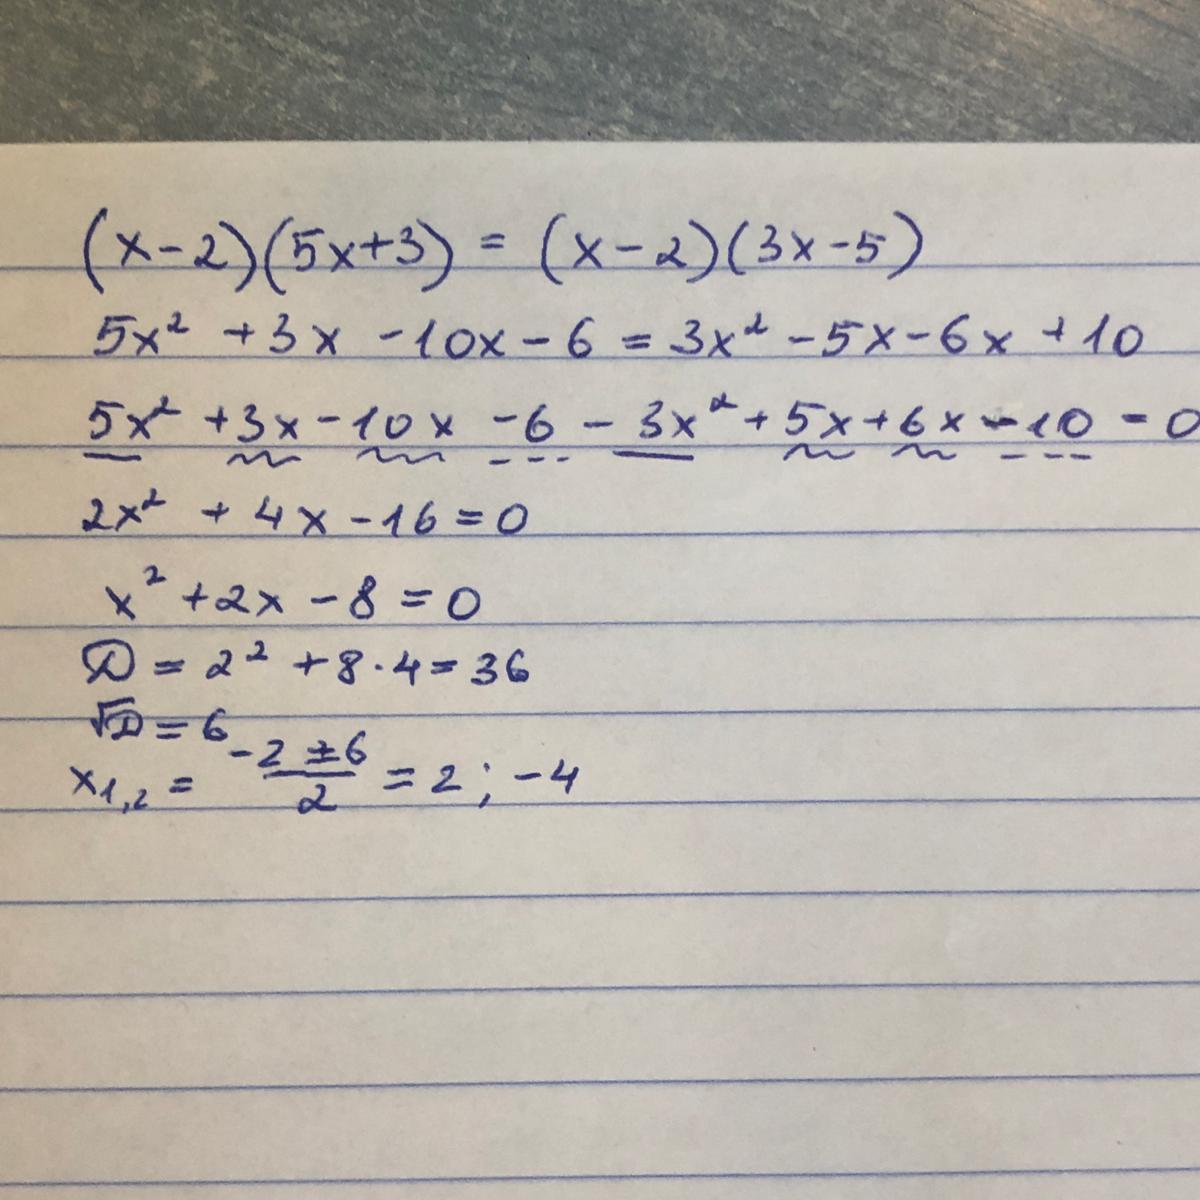 (x-2)(5x+3) = (x-2)(3x-5)
5x² +3x -10x-6 = 3x² -5x-6x +10
5x² +3x-10x -6 - 3x² +5x+6x -10 = 0
2x² + 4x -16 = 0
x² +2x -8 = 0
D = 2² +8·4 = 36
√D = 6
x₁,₂ = (-2 ± 6)/2 = 2; -4